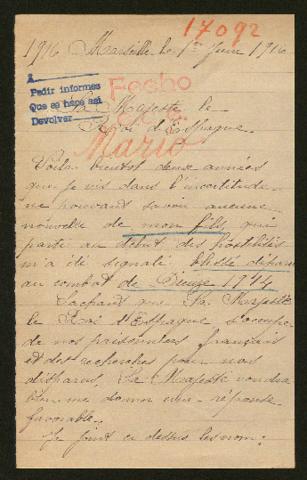 17092
1916 Marseille le 1er Juin 1916
A
Pedir informes
Que se hace así
Devolver
Fecho
Sa Majesté le
Roi d'Espagne.
Mario
Voila bientot deux années
que je vis dans l'incertitude
ne pouvant savoir aucune
nouvelle de mon fils, qui
parti au début des hostilités
m'a été signalé Blessé disparu
au combat de Dieuze 1914
Sachant que Sa Majesté
le Roi d'Espagne s'occupe
de nos prisonniers français
et des recherches pour nos
disparus, Sa Majesté voudra
bien me donner une réponse
favorable.
Je joint ci dessus les nom: